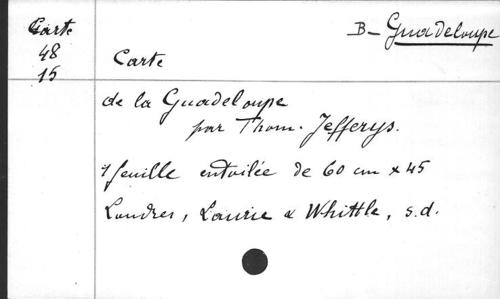 Carte
48
15
B- Guadeloupe
Carte
de la Guadeloupe
par Thom. Jefferys.
1 feuille entoilée de 60 cm x 45
Londres, Laurie & Whittle, s.d.